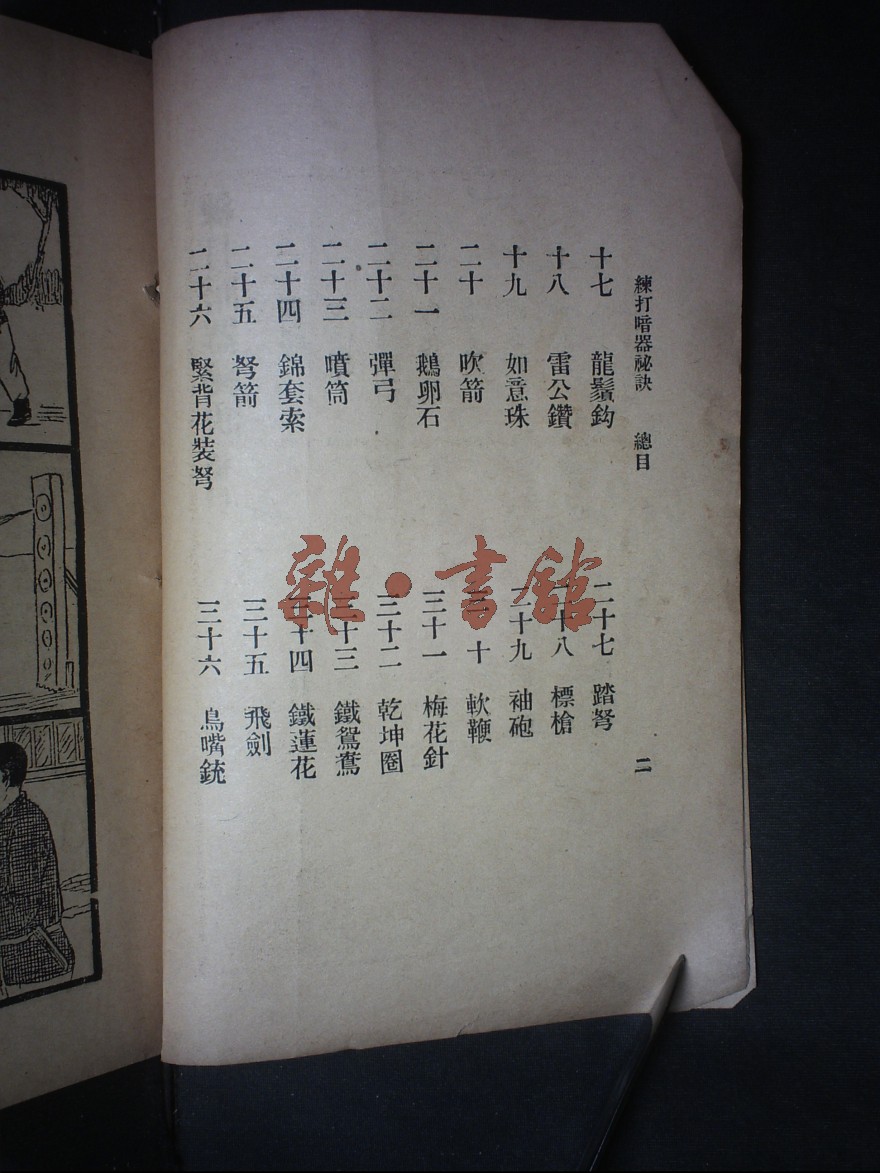 練打暗器祕訣　總目　二
十七　龍鬚鈎
十八　雷公鑽
十九　如意珠
二十　吹箭
二十一　鵝卵石
二十二　彈弓
二十三　噴筒
二十四　錦套索
二十五　弩箭
二十六　緊背花裝弩
二十七　踏弩
二十八　標槍
二十九　袖砲
三十　軟鞭
三十一　梅花針
三十二　乾坤圈
三十三　鐵鴛鴦
三十四　鐵蓮花
三十五　飛劍
三十六　鳥嘴銃
雜·書館